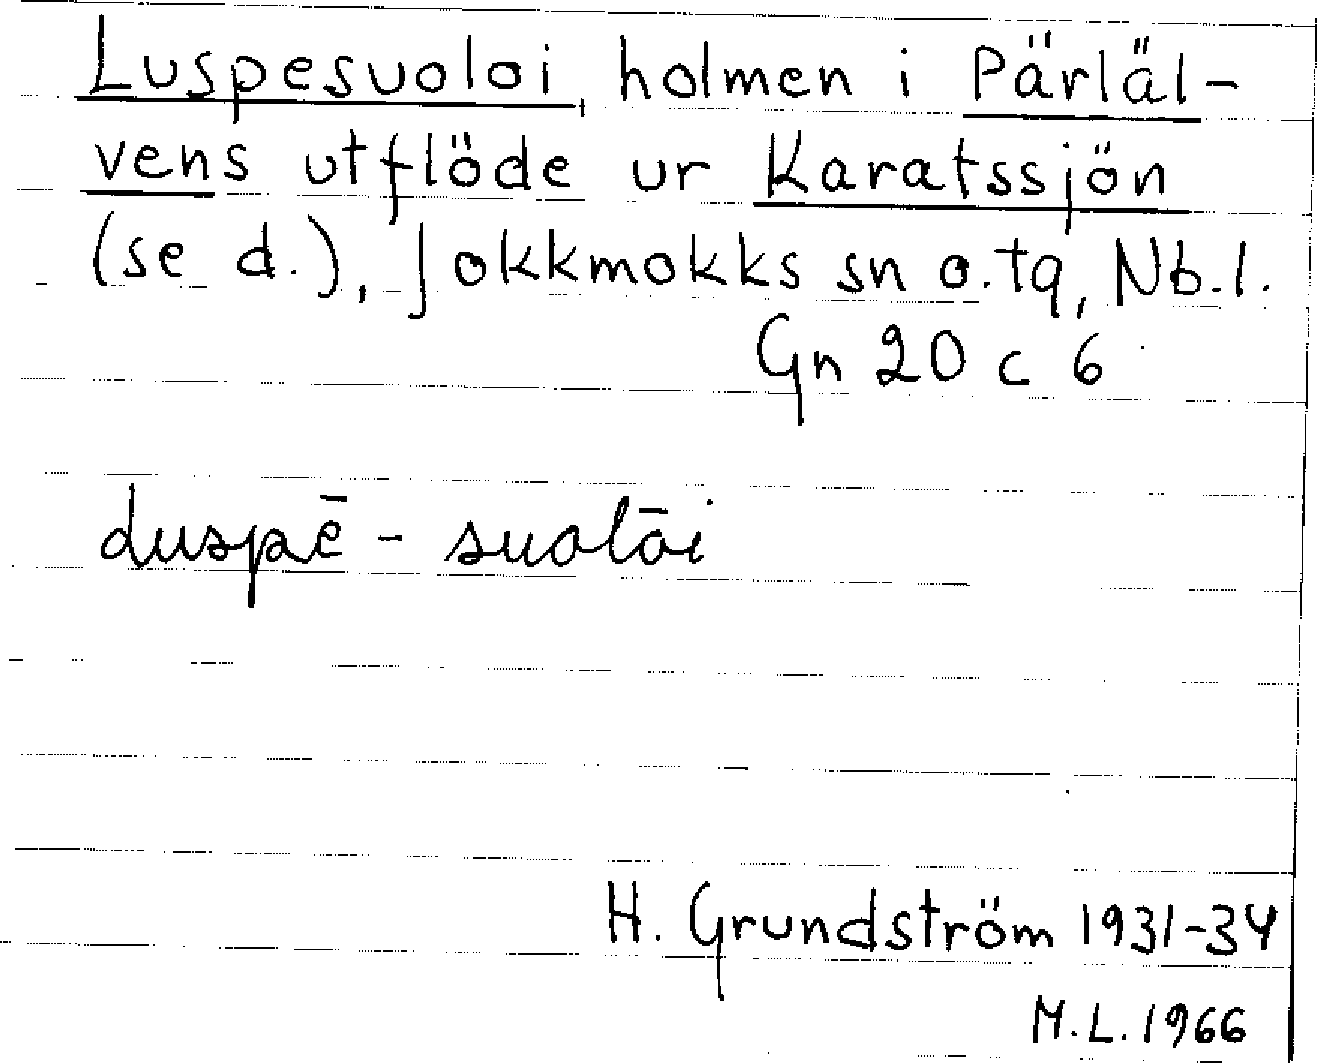 Luspesuoloi, holmen i Pärläl-
vens utflöde ur Karatssjön
(se d.), Jokkmokks sn o. tg, Nb. l.
Gn 20 c 6
luspē - suolōi
H. Grundström 1931-34
M.L. 1966